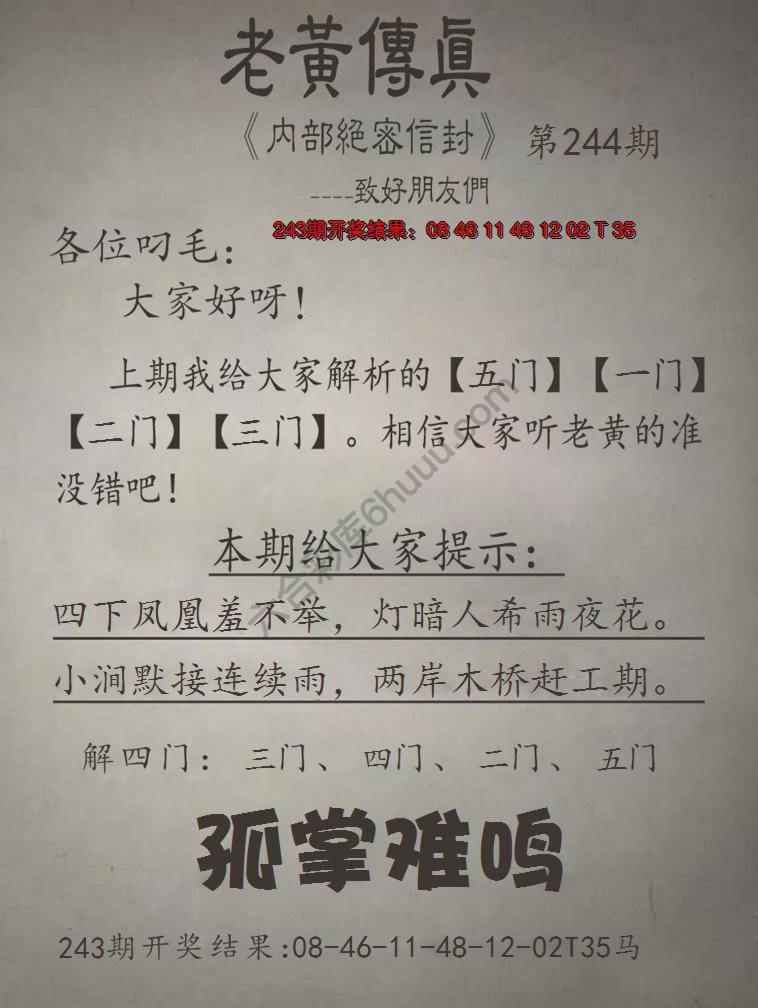 老黃傳眞
《内部絕密信封》 第244期
----致好朋友們
243期开奖结果：08 46 11 48 12 02 T 35
各位叼毛：
大家好呀！
上期我给大家解析的【五门】【一门】
【二门】【三门】。相信大家听老黄的准
没错吧！
本期给大家提示：
四下凤凰羞不举，灯暗人希雨夜花。
小涧默接连续雨，两岸木桥赶工期。
解四门：三门、四门、二门、五门
孤掌难鸣
243期开奖结果:08-46-11-48-12-02T35马
六合彩库6huuu.com